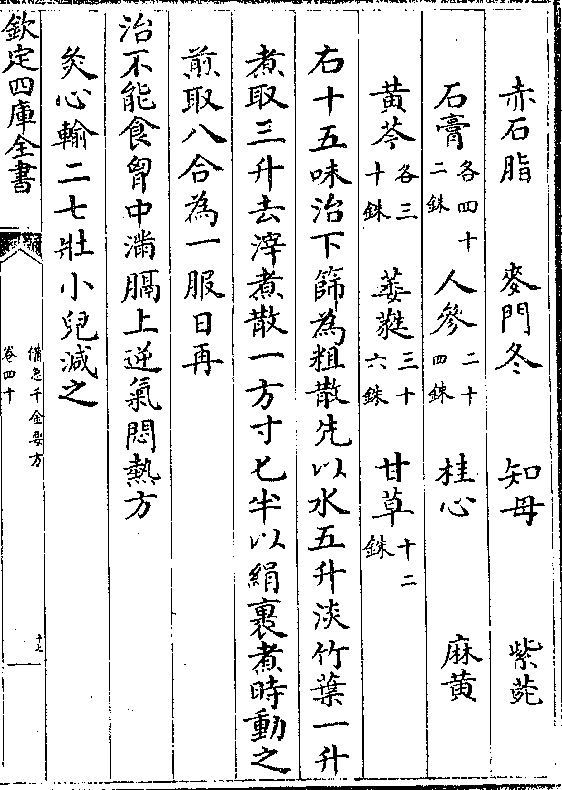 赤石脂　麥門冬　知母　紫菀
石膏各四十二銖　人參二十四銖　桂心　麻黄
黄芩各三十銖　萎蕤三十六銖　甘草十二銖
右十五味治下篩為粗散先以水五升淡竹葉一升
煮取三升去滓煮散一方寸匕半以絹裹煮時動之
煎取八合為一服日再
治不能食胷中滿膈上逆氣悶熱方
灸心輸二七壯小兒減之
欽定四庫全書
備急千金要方
卷四十